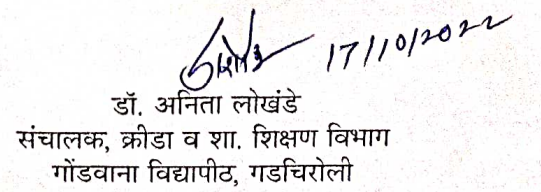 17/10/2022
डॉ. अनिता लोखंडे
संचालक, क्रीडा व शा. शिक्षण विभाग
गोंडवाना विद्यापीठ, गडचिरोली